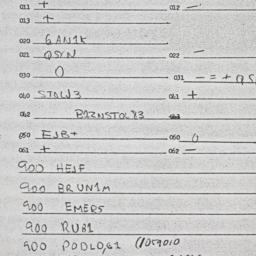 011 + 012 -
013 +
020 6AN1K
021 QSYN 022 -
030 0 031 - = + 9S
040 STOLJ3 041 +
042 BRZNSTOL83 043
050 EJB+ 060 0
061 + 062 -
900 HEJF
900 BRUN1M
900 EMER5
900 RUB1
900 PODLO,61 (1059010